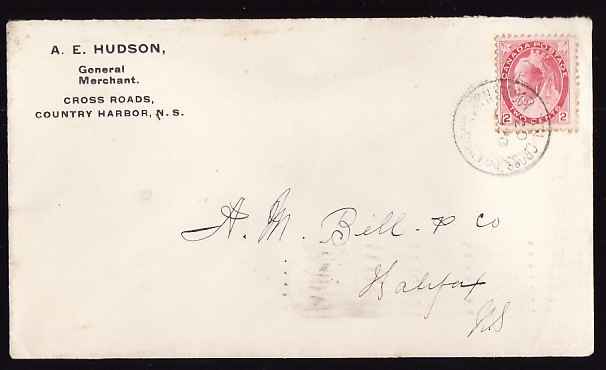 A. E. HUDSON,
General
Merchant.
CROSS ROADS,
COUNTRY HARBOR, N. S.
CANADA POSTAGE
2 TWO CENTS 2
A. M. Bell & Co
Halifax
NS